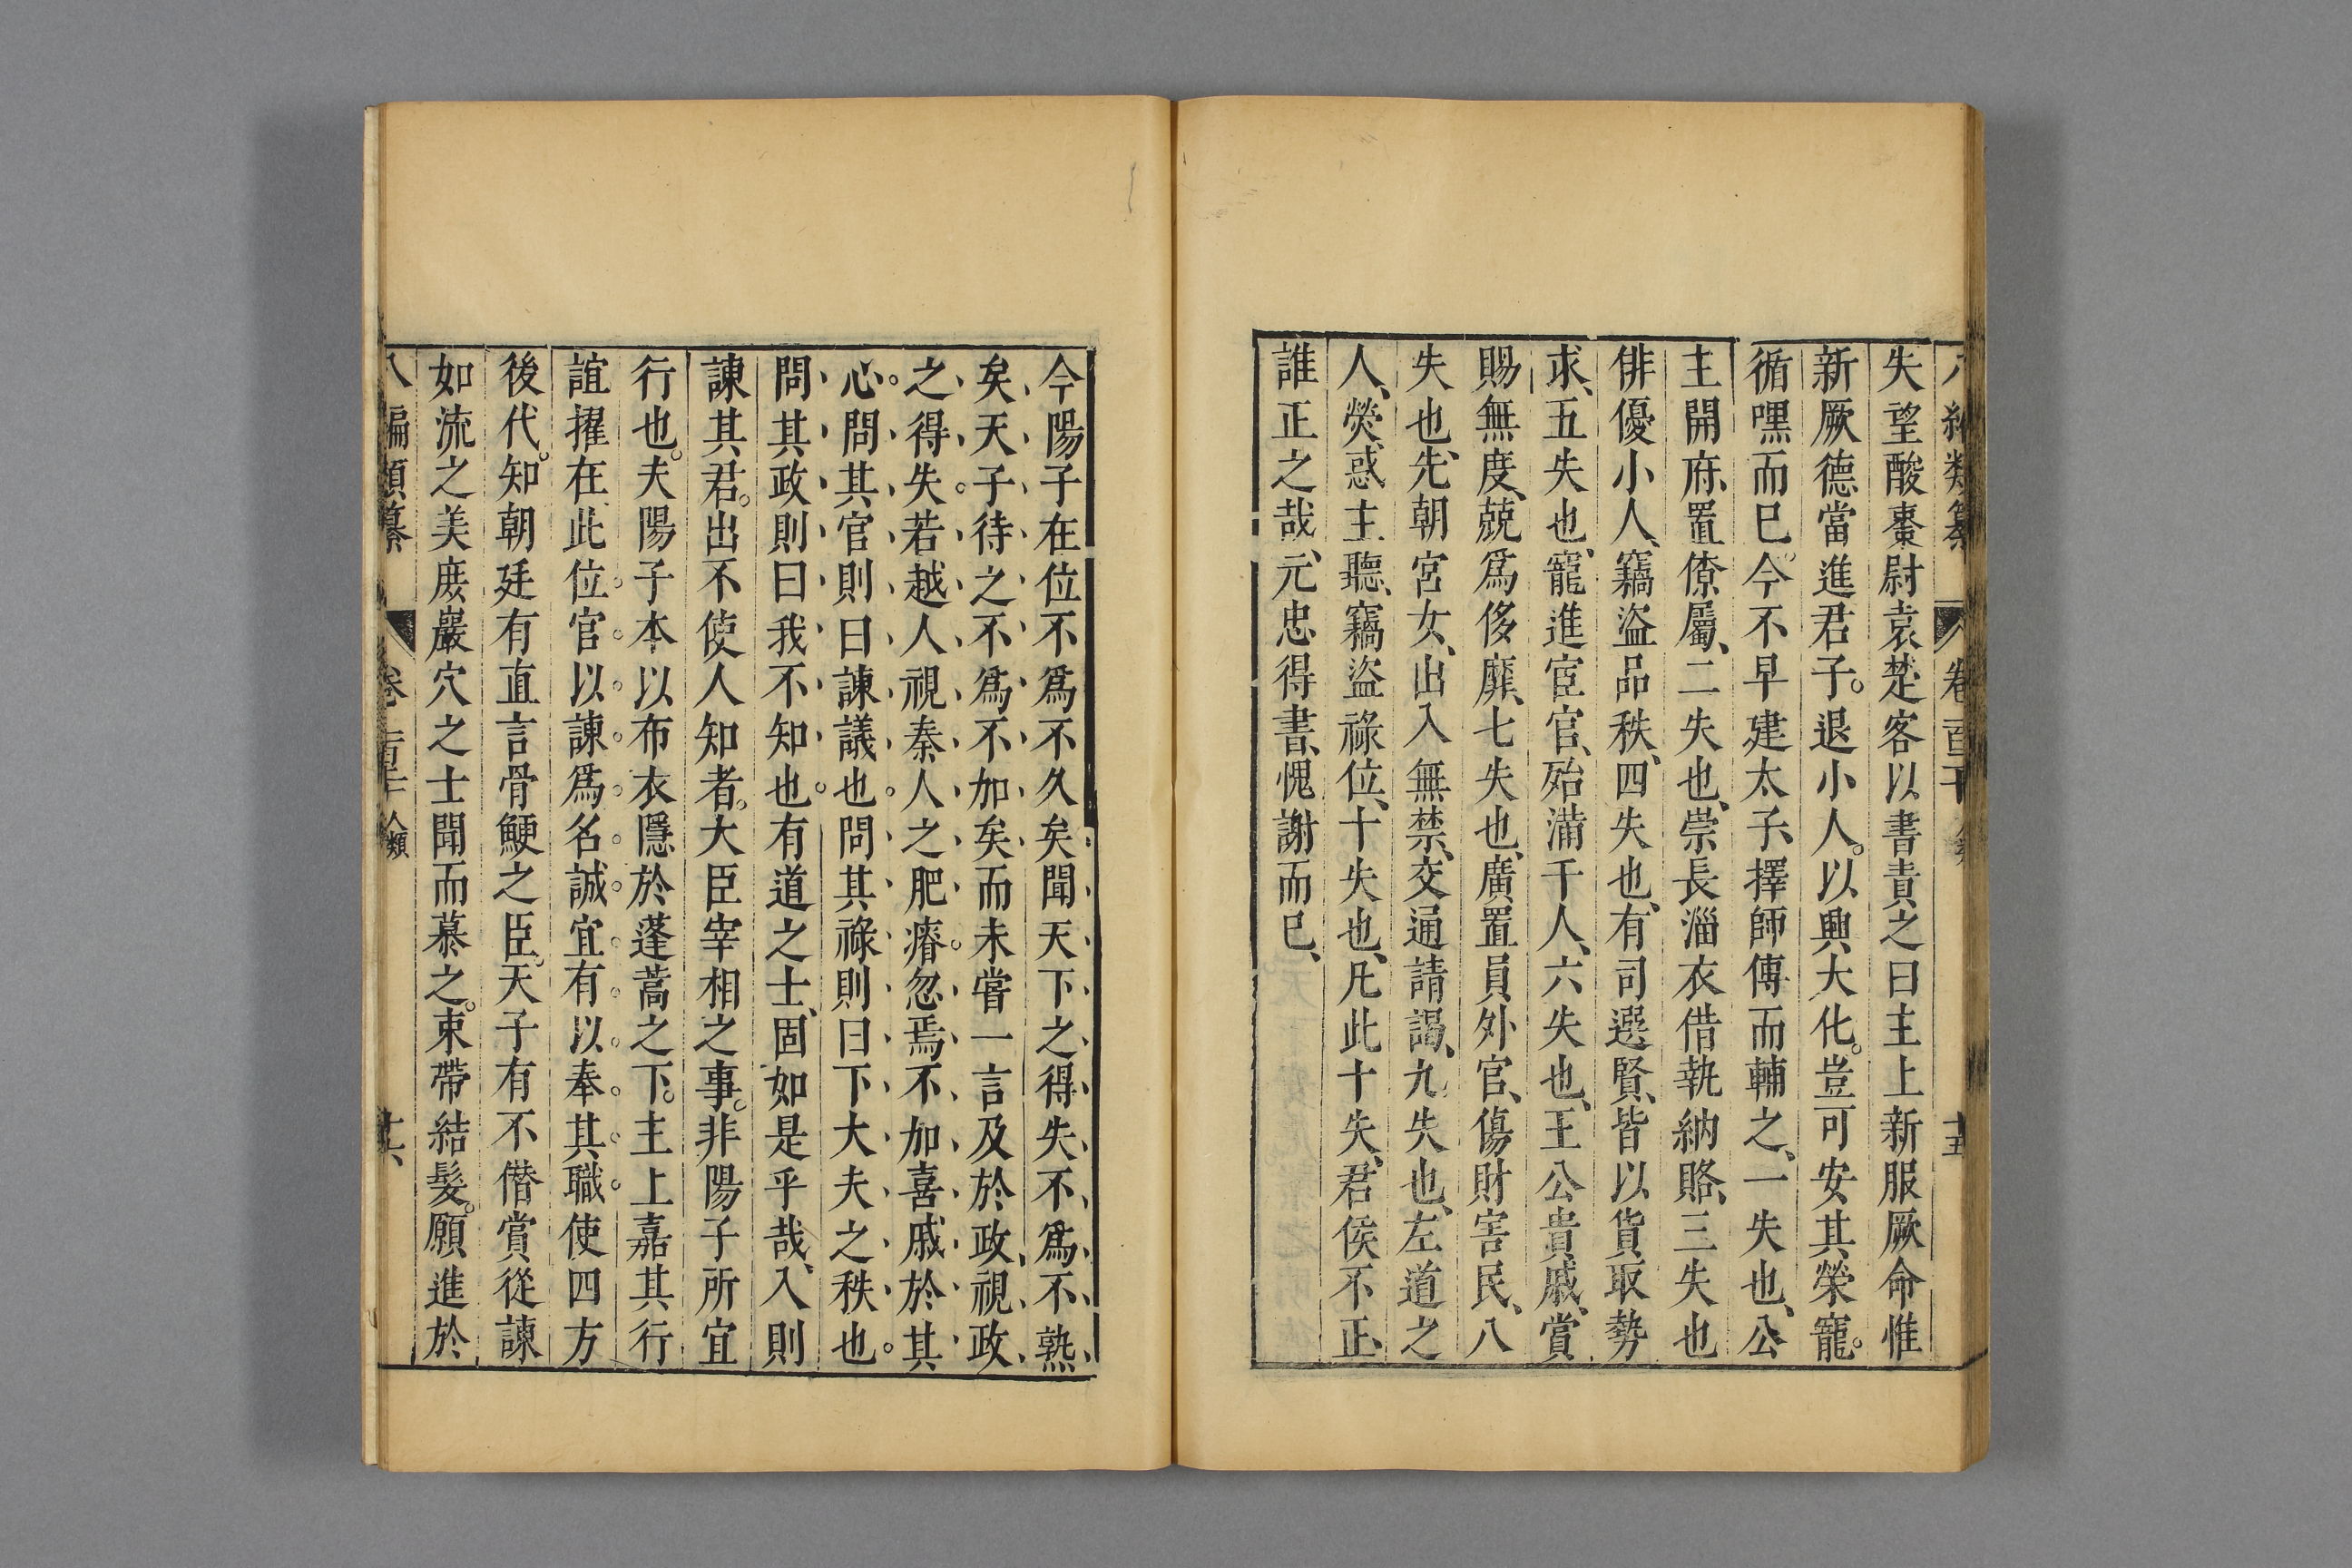 失望酸棗尉袁楚客以書責之曰主上新服厥命惟
新厥德當進君子。退小人。以興大化。豈可安其榮寵。
循嘿而已。今不早建太子、擇師傅而輔之、一失也、公
主開府、置僚屬、二失也、崇長淄衣借執納賂、三失也
俳優小人、竊盜品秩、四失也、有司選賢、皆以貨取勢
求、五失也、寵進宦官、殆滿千人、六失也、王公貴戚、賞
賜無度、兢爲侈靡、七失也、廣置員外官、傷財害民、八
失也、先朝宮女、出入無禁、交通請謁、九失也、左道之
人、熒惑主聽、竊盜祿位、十失也、凡此十失、君侯不正、
誰正之哉、元忠得書、愧謝而已、
今陽子在位不爲不久矣聞天下之得失不爲不熟
矣天子待之不爲不加矣而未嘗一言及於政、視政
之得失。若越人視秦人之肥瘠。忽焉不加喜戚於其
心。問其官則曰諫議也。問其祿則曰下大夫之秩也。
問其政則曰我不知也。有道之士、固如是乎哉、入則
諫其君。出不使人知者。大臣宰相之事。非陽子所宜
行也。夫陽子本以布衣隱於蓬蒿之下。主上嘉其行
誼擢在此位官以諫爲名誠宜有以奉其職使四方
後代。知朝廷有直言骨鯁之臣。天子有不僭賞從諫
如流之美庶巖穴之士聞而慕之。束帶結髮。願進於
編類纂 卷 人類 十六